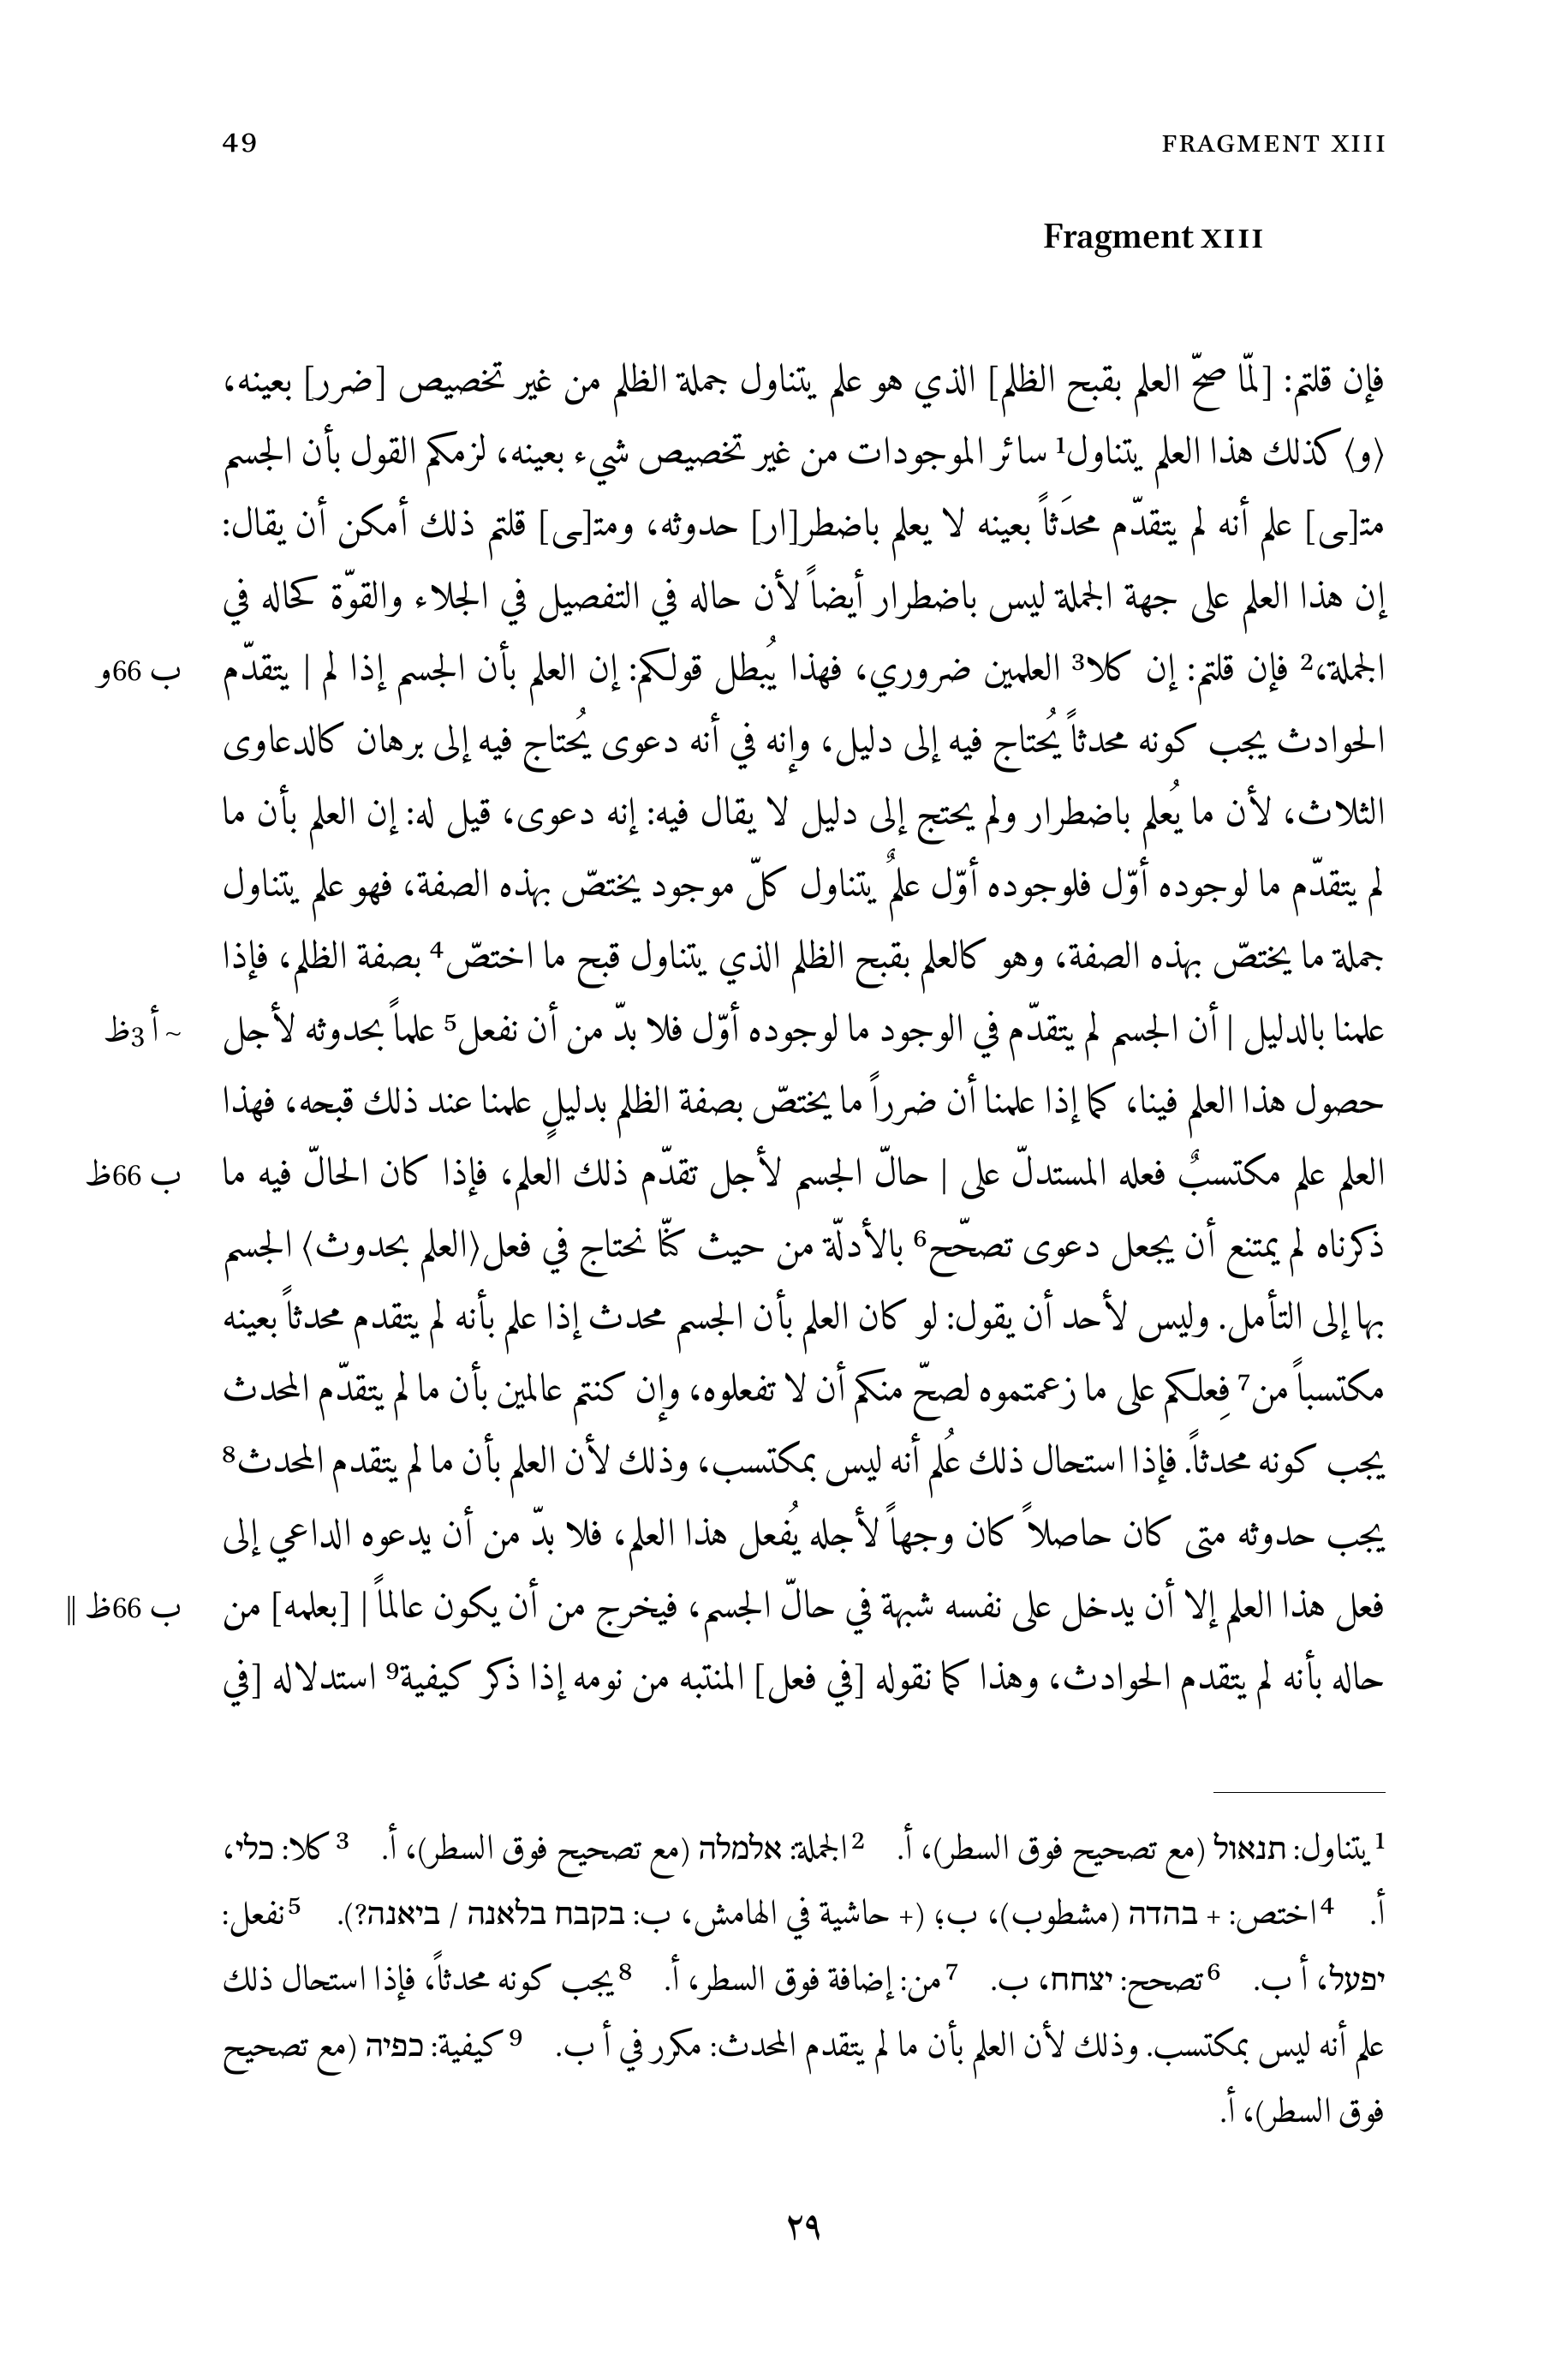 49
FRAGMENT XIII
Fragment XIII
فإن قلتم: [لمّا صحّ العلم بقبح الظلم] الذي هو علم يتناول جملة الظلم من غير تخصيص [ضرر] بعينه،
⟨و⟩كذلك هذا العلم يتناول1 سائر الموجودات من غير تخصيص شيء بعينه، لزمكم القول بأن الجسم
متـ[ـى] علم أنه لم يتقدّم محدَثاً بعينه لا يعلم باضطر[ار] حدوثه، ومتـ[ـى] قلتم ذلك أمكن أن يقال:
إن هذا العلم على جهة الجملة ليس باضطرار أيضاً لأن حاله في التفصيل في الجلاء والقوّة كحاله في
الجملة،2 فإن قلتم: إن كلا3 العلمين ضروري، فهذا يُبطل قولكم: إن العلم بأن الجسم إذا لم | يتقدّم ب 66و
الحوادث يجب كونه محدثاً يُحتاج فيه إلى دليل، وإنه في أنه دعوى يُحتاج فيه إلى برهان كالدعاوى
الثلاث، لأن ما يُعلم باضطرار ولم يحتج إلى دليل لا يقال فيه: إنه دعوى، قيل له: إن العلم بأن ما
لم يتقدّم ما لوجوده أوّل فلوجوده أوّل علمٌ يتناول كلّ موجود يختصّ بهذه الصفة، فهو علم يتناول
جملة ما يختصّ بهذه الصفة، وهو كالعلم بقبح الظلم الذي يتناول قبح ما اختصّ4 بصفة الظلم، فإذا
علمنا بالدليل | أن الجسم لم يتقدّم في الوجود ما لوجوده أوّل فلا بدّ من أن نفعل5 علماً بحدوثه لأجل ~ أ3ظ
حصول هذا العلم فينا، كما إذا علمنا أن ضرراً ما يختصّ بصفة الظلم بدليلٍ علمنا عند ذلك قبحه، فهذا
العلم علم مكتسبٌ فعله المستدلّ على | حالّ الجسم لأجل تقدّم ذلك العلم، فإذا كان الحالّ فيه ما ب 66ظ
ذكرناه لم يمتنع أن يجعل دعوى تصحّح6 بالأدلّة من حيث كنّا نحتاج في فعل⟨العلم بحدوث⟩ الجسم
بها إلى التأمل. وليس لأحد أن يقول: لو كان العلم بأن الجسم محدث إذا علم بأنه لم يتقدم محدثاً بعينه
مكتسباً من7 فِعلكم على ما زعمتموه لصحّ منكم أن لا تفعلوه، وإن كنتم عالمين بأن ما لم يتقدّم المحدث
يجب كونه محدثاً. فإذا استحال ذلك عُلم أنه ليس بمكتسب، وذلك لأن العلم بأن ما لم يتقدم المحدث8
يجب حدوثه متى كان حاصلاً كان وجهاً لأجله يُفعل هذا العلم، فلا بدّ من أن يدعوه الداعي إلى
فعل هذا العلم إلا أن يدخل على نفسه شبهة في حالّ الجسم، فيخرج من أن يكون عالماً | [بعلمه] من ب 66ظ ‖
حاله بأنه لم يتقدم الحوادث، وهذا كما نقوله [في فعل] المنتبه من نومه إذا ذكر كيفية9 استدلاله [في
1 يتناول: תנאול (مع تصحيح فوق السطر)، أ. 2 الجملة: אלמלה (مع تصحيح فوق السطر)، أ. 3 كلا: כלי،
أ. 4 اختص: + בהדה (مشطوب)، ب؛ (+ حاشية في الهامش، ب: בקבח בלאנה / ביאנה?). 5 نفعل:
יפעל، أ ب. 6 تصحح: יצחח، ب. 7 من: إضافة فوق السطر، أ. 8 يجب كونه محدثاً، فإذا استحال ذلك
علم أنه ليس بمكتسب. وذلك لأن العلم بأن ما لم يتقدم المحدث: مكرر في أ ب. 9 كيفية: כפיה (مع تصحيح
فوق السطر)، أ.
٢٩